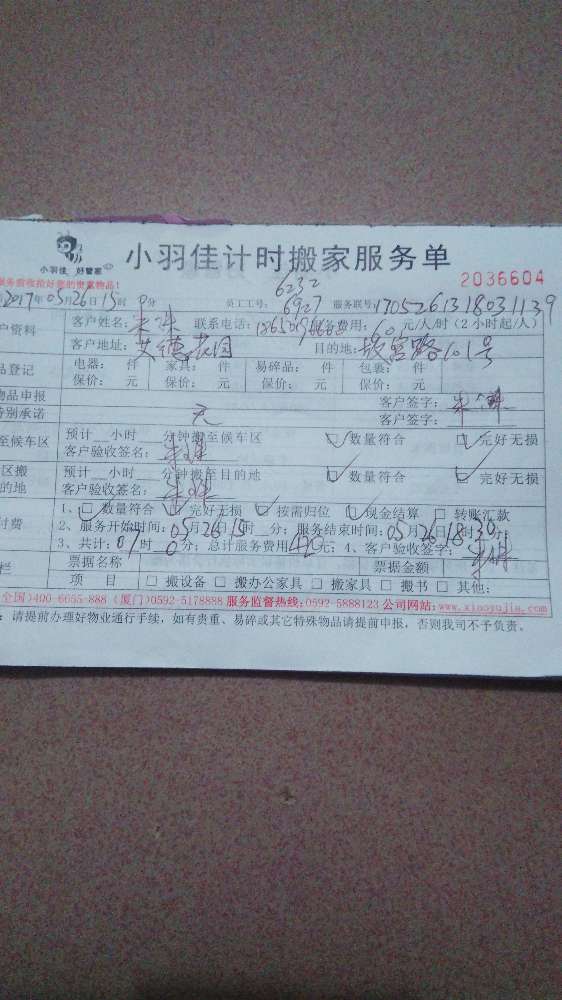 小羽佳 好管家
小羽佳计时搬家服务单
2036604
服务前收拾好您的贵重物品!
6232
2017年05月26日15时0分 员工工号: 6927 服务联号: 1705261318031139
户资料 客户姓名: 联系电话: 费用: 60 元/人/时(2小时起/人)
客户地址: 艾德花园 目的地: 101号
品登记 电器: 件 家具: 件 易碎品: 件 包裹: 件
保价: 元 保价: 元 保价: 元 保价: 元
物品申报 客户签字:
特别承诺 无 客户签字:
至候车区 预计__小时__分钟搬至候车区 数量符合 完好无损
客户验收签名:
区搬 预计__小时__分钟搬至目的地 数量符合 完好无损
的地 客户验收签名:
1、 数量符合 完好无损 按需归位 现金结算 转账汇款
付费 2、服务开始时间: 05月26日15时__分; 服务结束时间: 05月26日18时30分;
3、共计: 07时0分; 总计服务费用420元; 4、客户验收签字:
栏 票据名称 票据金额
项 目 搬设备 搬办公家具 搬家具 搬书 其他:
全国)400-6655-888 (厦门)0592-5178888 服务监督热线:0592-5888123 公司网站:www.xiaoyujia.com
: 请提前办理好物业通行手续, 如有贵重、易碎或其它特殊物品请提前申报, 否则我司不予负责。